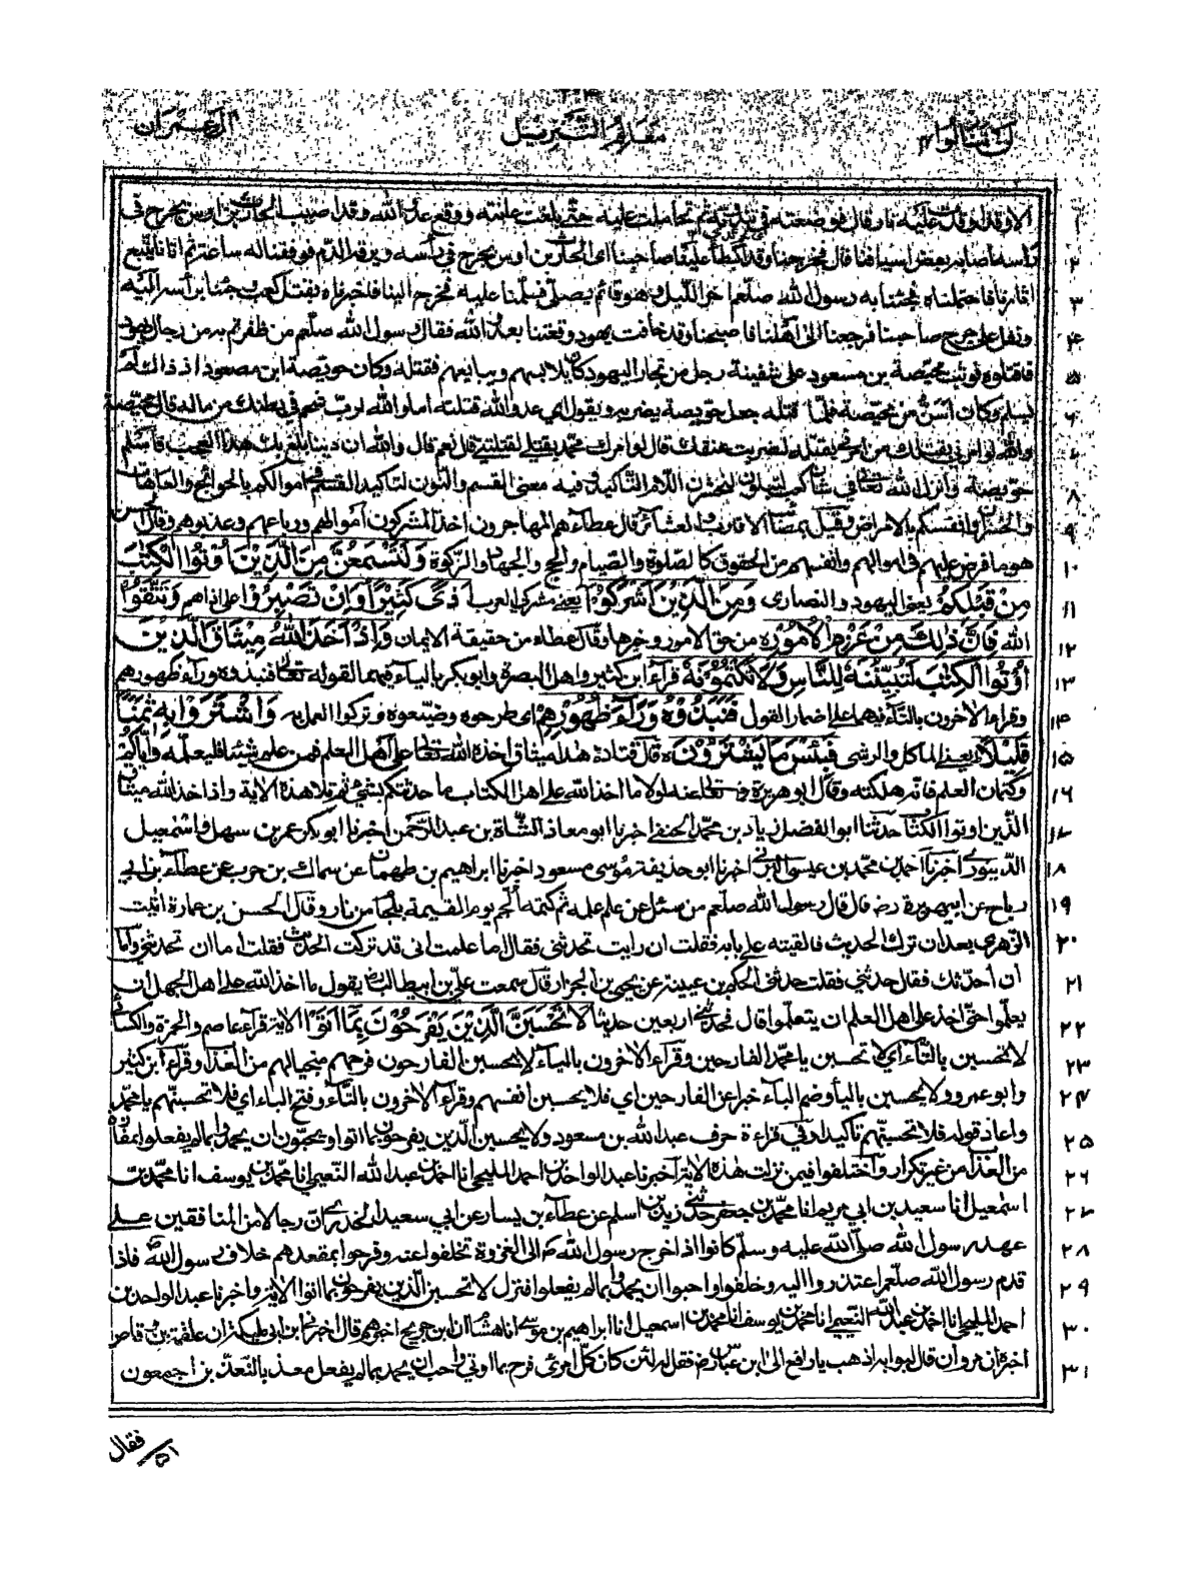 لن تنالوا ٤ معالم التنزيل آل عمران
١ الا وقد اوقدت عليه نار قال فوضعته في ثندوته ثم تحاملت عليه حتى بلغت عانته ووقع عدو الله وقد اصيب الحارث بن اوس بجرح في
٢ رأسه اصابه بعض اسيافنا قال فخرجنا وقد ابطأ علينا صاحبنا اي الحارث بن اوس بجرح في رأسه ونزفه الدم فوقفنا له ساعة ثم اتانا يتبع
٣ اثارنا فاحتملناه فجئنا به رسول الله صلعم اخر الليل وهو قائم يصلي فسلمنا عليه فخرج الينا فاخبرناه بقتل كعب وجئنا برأسه اليه
٤ وتفل على جرح صاحبنا فرجعنا الى اهلنا فاصبحنا وقد خافت يهود وقعتنا بعدو الله فقال رسول الله صلعم من ظفرتم به من رجال يهود
٥ فاقتلوه فوثب محيصة بن مسعود على سفينة رجل من تجار اليهود كان يلابسهم ويبايعهم فقتله وكان حويصة ابن مسعود اذ ذاك لم
٦ يسلم وكان اسن من محيصة فلما قتله جعل حويصة يضربه ويقول اي عدو الله قتلته اما والله لرب شحم في بطنك من ماله قال محيصة
٧ والله لو امرني بقتلك من امرني بقتله لضربت عنقك قال لو امرك محمد بقتلي لقتلتني قال نعم قال والله ان دينا بلغ بك هذا لعجب فاسلم
٨ حويصة وانزل الله تعالى في شأن كعب لتبلون لتختبرن اللام للتأكيد وفيه معنى القسم والنون لتاكيد القسم في اموالكم بالحوائج والعاهات
٩ والخسران وانفسكم بالامراض وقيل بمصائب الاقارب والعشائر قال عطاء هم المهاجرون اخذ المشركون اموالهم ورباعهم وعذبوهم وقال الحسن
١٠ هو ما فرض عليهم في اموالهم وانفسهم من الحقوق كالصلوة والصيام والحج والجهاد والزكوة وَلَتَسْمَعُنَّ مِنَ الَّذِيْنَ اُوْتُوا الْكِتٰبَ
١١ مِنْ قَبْلِكُمْ يعني اليهود والنصارى وَمِنَ الَّذِيْنَ اَشْرَكُوْٓا يعني مشركي العرب اَذًى كَثِيْرًا وَاِنْ تَصْبِرُوْا على اذاهم وَتَتَّقُوْا
١٢ الله فَاِنَّ ذٰلِكَ مِنْ عَزْمِ الْاُمُوْرِ من حق الامور وخيرها وقال عطاء من حقيقة الايمان وَاِذْ اَخَذَ اللّٰهُ مِيْثَاقَ الَّذِيْنَ
١٣ اُوْتُوا الْكِتٰبَ لَتُبَيِّنُنَّهٗ لِلنَّاسِ وَلَا تَكْتُمُوْنَهٗ قرأ ابن كثير واهل البصرة وابو بكر بالياء فيهما لقوله تعالى فنبذوه وراء ظهورهم
١٤ وقرأها الاخرون بالتاء فيهما على اضمار القول فَنَبَذُوْهُ وَرَآءَ ظُهُوْرِهِمْ اي طرحوه وضيعوه وتركوا العمل به وَاشْتَرَوْا بِهٖ ثَمَنًا
١٥ قَلِيْلًا يعني الماكل والرشى فَبِئْسَ مَا يَشْتَرُوْنَ قال قتادة هذا ميثاق اخذه الله تعالى على اهل العلم فمن علم شيئا فليعلمه واياكم
١٦ وكتمان العلم فانه هلكة وقال ابو هريرة رضي الله تعالى عنه لولا ما اخذ الله على اهل الكتاب ما حدثتكم بشيء ثم تلا هذه الاية واذ اخذ الله ميثاق
١٧ الذين اوتوا الكتاب حدثنا ابو الفضل زياد بن محمد الحنفي اخبرنا ابو معاذ الشاة بن عبد الرحمن اخبرنا ابو بكر عمر بن سهل بن اسمعيل
١٨ الدينوري اخبرنا احمد بن محمد بن عيسى البرتي اخبرنا ابو حذيفة موسى مسعود اخبرنا ابراهيم بن طهمان عن سماك بن حرب عن عطاء بن ابي
١٩ رباح عن ابي هريرة رض قال قال رسول الله صلعم من سئل عن علم علمه ثم كتمه الجم يوم القيمة بلجام من نار وقال الحسن بن عمارة اتيت
٢٠ الزهري بعد ان ترك الحديث فالقيته على بابه فقلت ان رايت تحدثني فقال اما علمت اني قد تركت الحديث فقلت اما ان تحدثني واما
٢١ ان احدثك فقال حدثني فقلت حدثني الحكم بن عيينة عن يحيى بن الجزار قال سمعت علي بن ابيطالب رض يقول ما اخذ الله على اهل الجهل ان
٢٢ يعلموا حتى اخذ على اهل العلم ان يتعلموا قال فحدثني اربعين حديثا لَا تَحْسَبَنَّ الَّذِيْنَ يَفْرَحُوْنَ بِمَآ اَتَوْا الاية قرأ عاصم والحمزة والكسائي
٢٣ لا تحسبن بالتاء اي لا تحسبن يا محمد الفارحين وقرأ الاخرون بالياء لا يحسبن الفارحون فرحهم منجيا لهم من العذاب وقرأ ابن كثير
٢٤ وابو عمرو ولا يحسبن بالياء وضم الباء خبرا عن الفارحين اي فلا يحسبن انفسهم وقرأ الاخرون بالتاء وفتح الباء اي فلا تحسبنهم يا محمد
٢٥ واعاد قوله فلا تحسبنهم تأكيدا وفي قراءة حرف عبد الله بن مسعود ولا يحسبن الذين يفرحون بما اتوا ويحبون ان يحمدوا بما لم يفعلوا بمفازة
٢٦ من العذاب من غير تكرار واختلفوا فيمن نزلت هذه الاية اخبرنا عبد الواحد بن احمد المليحي انا احمد بن عبد الله النعيمي انا محمد بن يوسف انا محمد بن
٢٧ اسمعيل انا سعيد بن ابي مريم انا محمد بن جعفر حدثني زيد بن اسلم عن عطاء بن يسار عن ابي سعيد الخدري ان رجالا من المنافقين على
٢٨ عهد رسول الله صلى الله عليه وسلم كانوا اذا خرج رسول الله صلعم الى الغزوة تخلفوا عنه وفرحوا بمقعدهم خلاف رسول الله فاذا
٢٩ قدم رسول الله صلعم اعتذروا اليه وحلفوا واحبوا ان يحمدوا بما لم يفعلوا فنزل لا تحسبن الذين يفرحون بما اتوا الاية واخبرنا عبد الواحد بن
٣٠ احمد المليحي انا احمد بن عبد الله النعيمي انا محمد بن يوسف انا محمد بن اسمعيل انا ابراهيم بن موسى انا هشام ان ابن جريج اخبرهم قال اخبرني ابن ابي مليكة ان علقمة بن وقاص
٣١ اخبره ان مروان قال لبوابه اذهب يا رافع الى ابن عباس رض فقل له لئن كان كل امرئ فرح بما اوتي واحب ان يحمد بما لم يفعل معذبا لنعذبن اجمعون
فقال
٥١